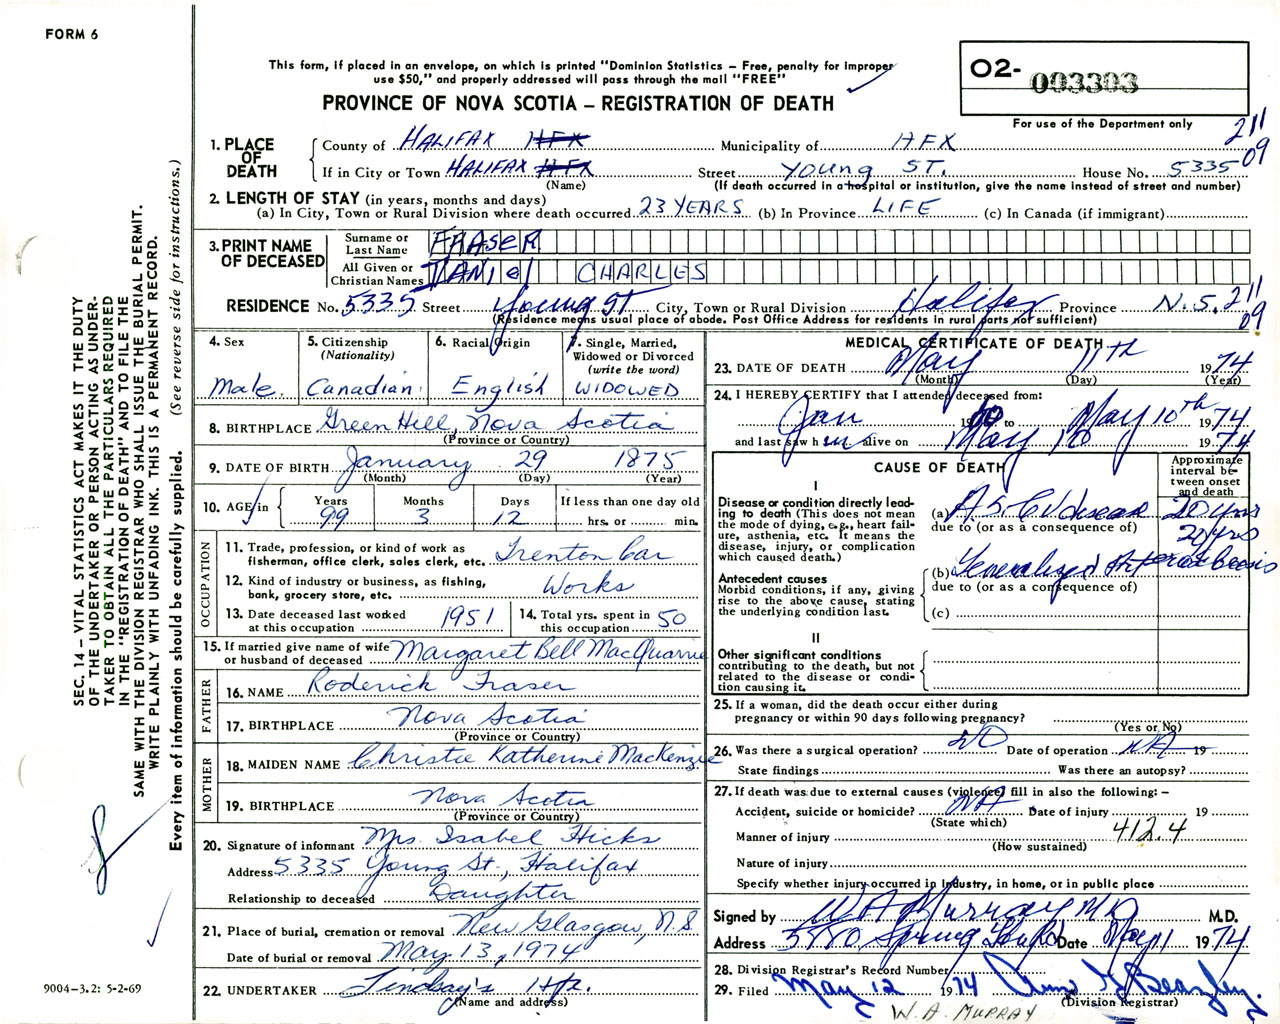 FORM 6
This form, if placed in an envelope, on which is printed "Dominion Statistics – Free, penalty for improper
use $50," and properly addressed will pass through the mail "FREE"
PROVINCE OF NOVA SCOTIA – REGISTRATION OF DEATH
O2- 003303
For use of the Department only
211
09
1. PLACE OF DEATH
County of HALIFAX HFX Municipality of HFX
If in City or Town HALIFAX HFX Street YOUNG ST. House No. 5335
(Name) (If death occurred in a hospital or institution, give the name instead of street and number)
2. LENGTH OF STAY (in years, months and days)
(a) In City, Town or Rural Division where death occurred 23 YEARS (b) In Province LIFE (c) In Canada (if immigrant)
3. PRINT NAME OF DECEASED
Surname or Last Name FRASER
All Given or Christian Names DANIEL CHARLES
RESIDENCE No. 5335 Street Young ST City, Town or Rural Division Halifax Province N.S. 211
09
(Residence means usual place of abode. Post Office Address for residents in rural parts not sufficient)
4. Sex
Male.
5. Citizenship
(Nationality)
Canadian
6. Racial Origin
English
7. Single, Married,
Widowed or Divorced
(write the word)
WIDOWED
8. BIRTHPLACE Green Hill, Nova Scotia
(Province or Country)
9. DATE OF BIRTH January 29 1875
(Month) (Day) (Year)
10. AGE in Years 99 Months 3 Days 12 If less than one day old
hrs. or min.
OCCUPATION
11. Trade, profession, or kind of work as
fisherman, office clerk, sales clerk, etc. Trenton Car
12. Kind of industry or business, as fishing,
bank, grocery store, etc. Works
13. Date deceased last worked
at this occupation 1951
14. Total yrs. spent in
this occupation 50
15. If married give name of wife
or husband of deceased Margaret Bell MacQuarrie
FATHER
16. NAME Roderick Fraser
17. BIRTHPLACE Nova Scotia
(Province or Country)
MOTHER
18. MAIDEN NAME Christie Katherine MacKenzie
19. BIRTHPLACE Nova Scotia
(Province or Country)
20. Signature of informant Mrs Isabel Hicks
Address 5335 Young St., Halifax
Relationship to deceased Daughter
21. Place of burial, cremation or removal New Glasgow, N.S
Date of burial or removal May 13, 1974
22. UNDERTAKER Lindsay's Hfx.
(Name and address)
MEDICAL CERTIFICATE OF DEATH
23. DATE OF DEATH May 11th 1974
(Month) (Day) (Year)
24. I HEREBY CERTIFY that I attended deceased from:
Jan 1960 to May 10th 1974
and last saw him alive on May 10 1974
CAUSE OF DEATH
Approximate
interval be-
tween onset
and death
I
Disease or condition directly lead-
ing to death (This does not mean
the mode of dying, e.g., heart fail-
ure, asthenia, etc. It means the
disease, injury, or complication
which caused death.)
(a) A.S.C.V. disease 20 yrs
due to (or as a consequence of)
20 yrs
Antecedent causes
Morbid conditions, if any, giving
rise to the above cause, stating
the underlying condition last.
(b) Generalized
due to (or as a consequence of)
(c)
II
Other significant conditions
contributing to the death, but not
related to the disease or condi-
tion causing it.
25. If a woman, did the death occur either during
pregnancy or within 90 days following pregnancy?
(Yes or No)
26. Was there a surgical operation? NO Date of operation NA 19
State findings Was there an autopsy?
27. If death was due to external causes (violence) fill in also the following: –
Accident, suicide or homicide? NA Date of injury 19
(State which)
Manner of injury 412.4
(How sustained)
Nature of injury
Specify whether injury occurred in industry, in home, or in public place
Signed by W A Murray MD M.D.
Address 5880 Spring Date May 11 1974
28. Division Registrar's Record Number
29. Filed May 12 1974
(Division Registrar)
W. A. MURRAY
SEC. 14 – VITAL STATISTICS ACT MAKES IT THE DUTY
OF THE UNDERTAKER OR PERSON ACTING AS UNDER-
TAKER TO OBTAIN ALL THE PARTICULARS REQUIRED
IN THE "REGISTRATION OF DEATH" AND TO FILE THE
SAME WITH THE DIVISION REGISTRAR WHO SHALL ISSUE THE BURIAL PERMIT.
WRITE PLAINLY WITH UNFADING INK. THIS IS A PERMANENT RECORD.
Every item of information should be carefully supplied. (See reverse side for instructions.)
9004-3.2: 5-2-69